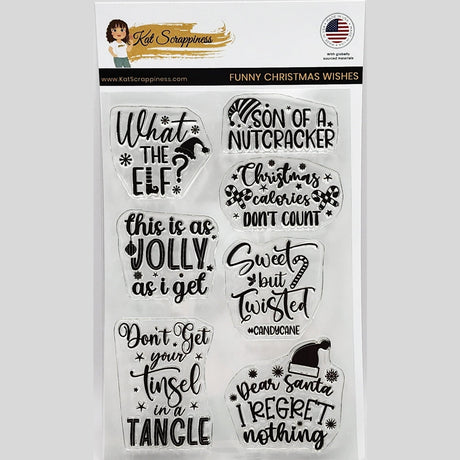 Kat Scrappiness
www.KatScrappiness.com
FUNNY CHRISTMAS WISHES
With globally
sourced materials
What
THE
ELF?
SON OF A
NUTCRACKER
Christmas
calories
DON'T COUNT
this is as
JOLLY
as i get
Sweet
but
Twisted
#CANDYCANE
Don't Get
your
Tinsel
in a
TANGLE
Dear Santa
I REGRET
nothing